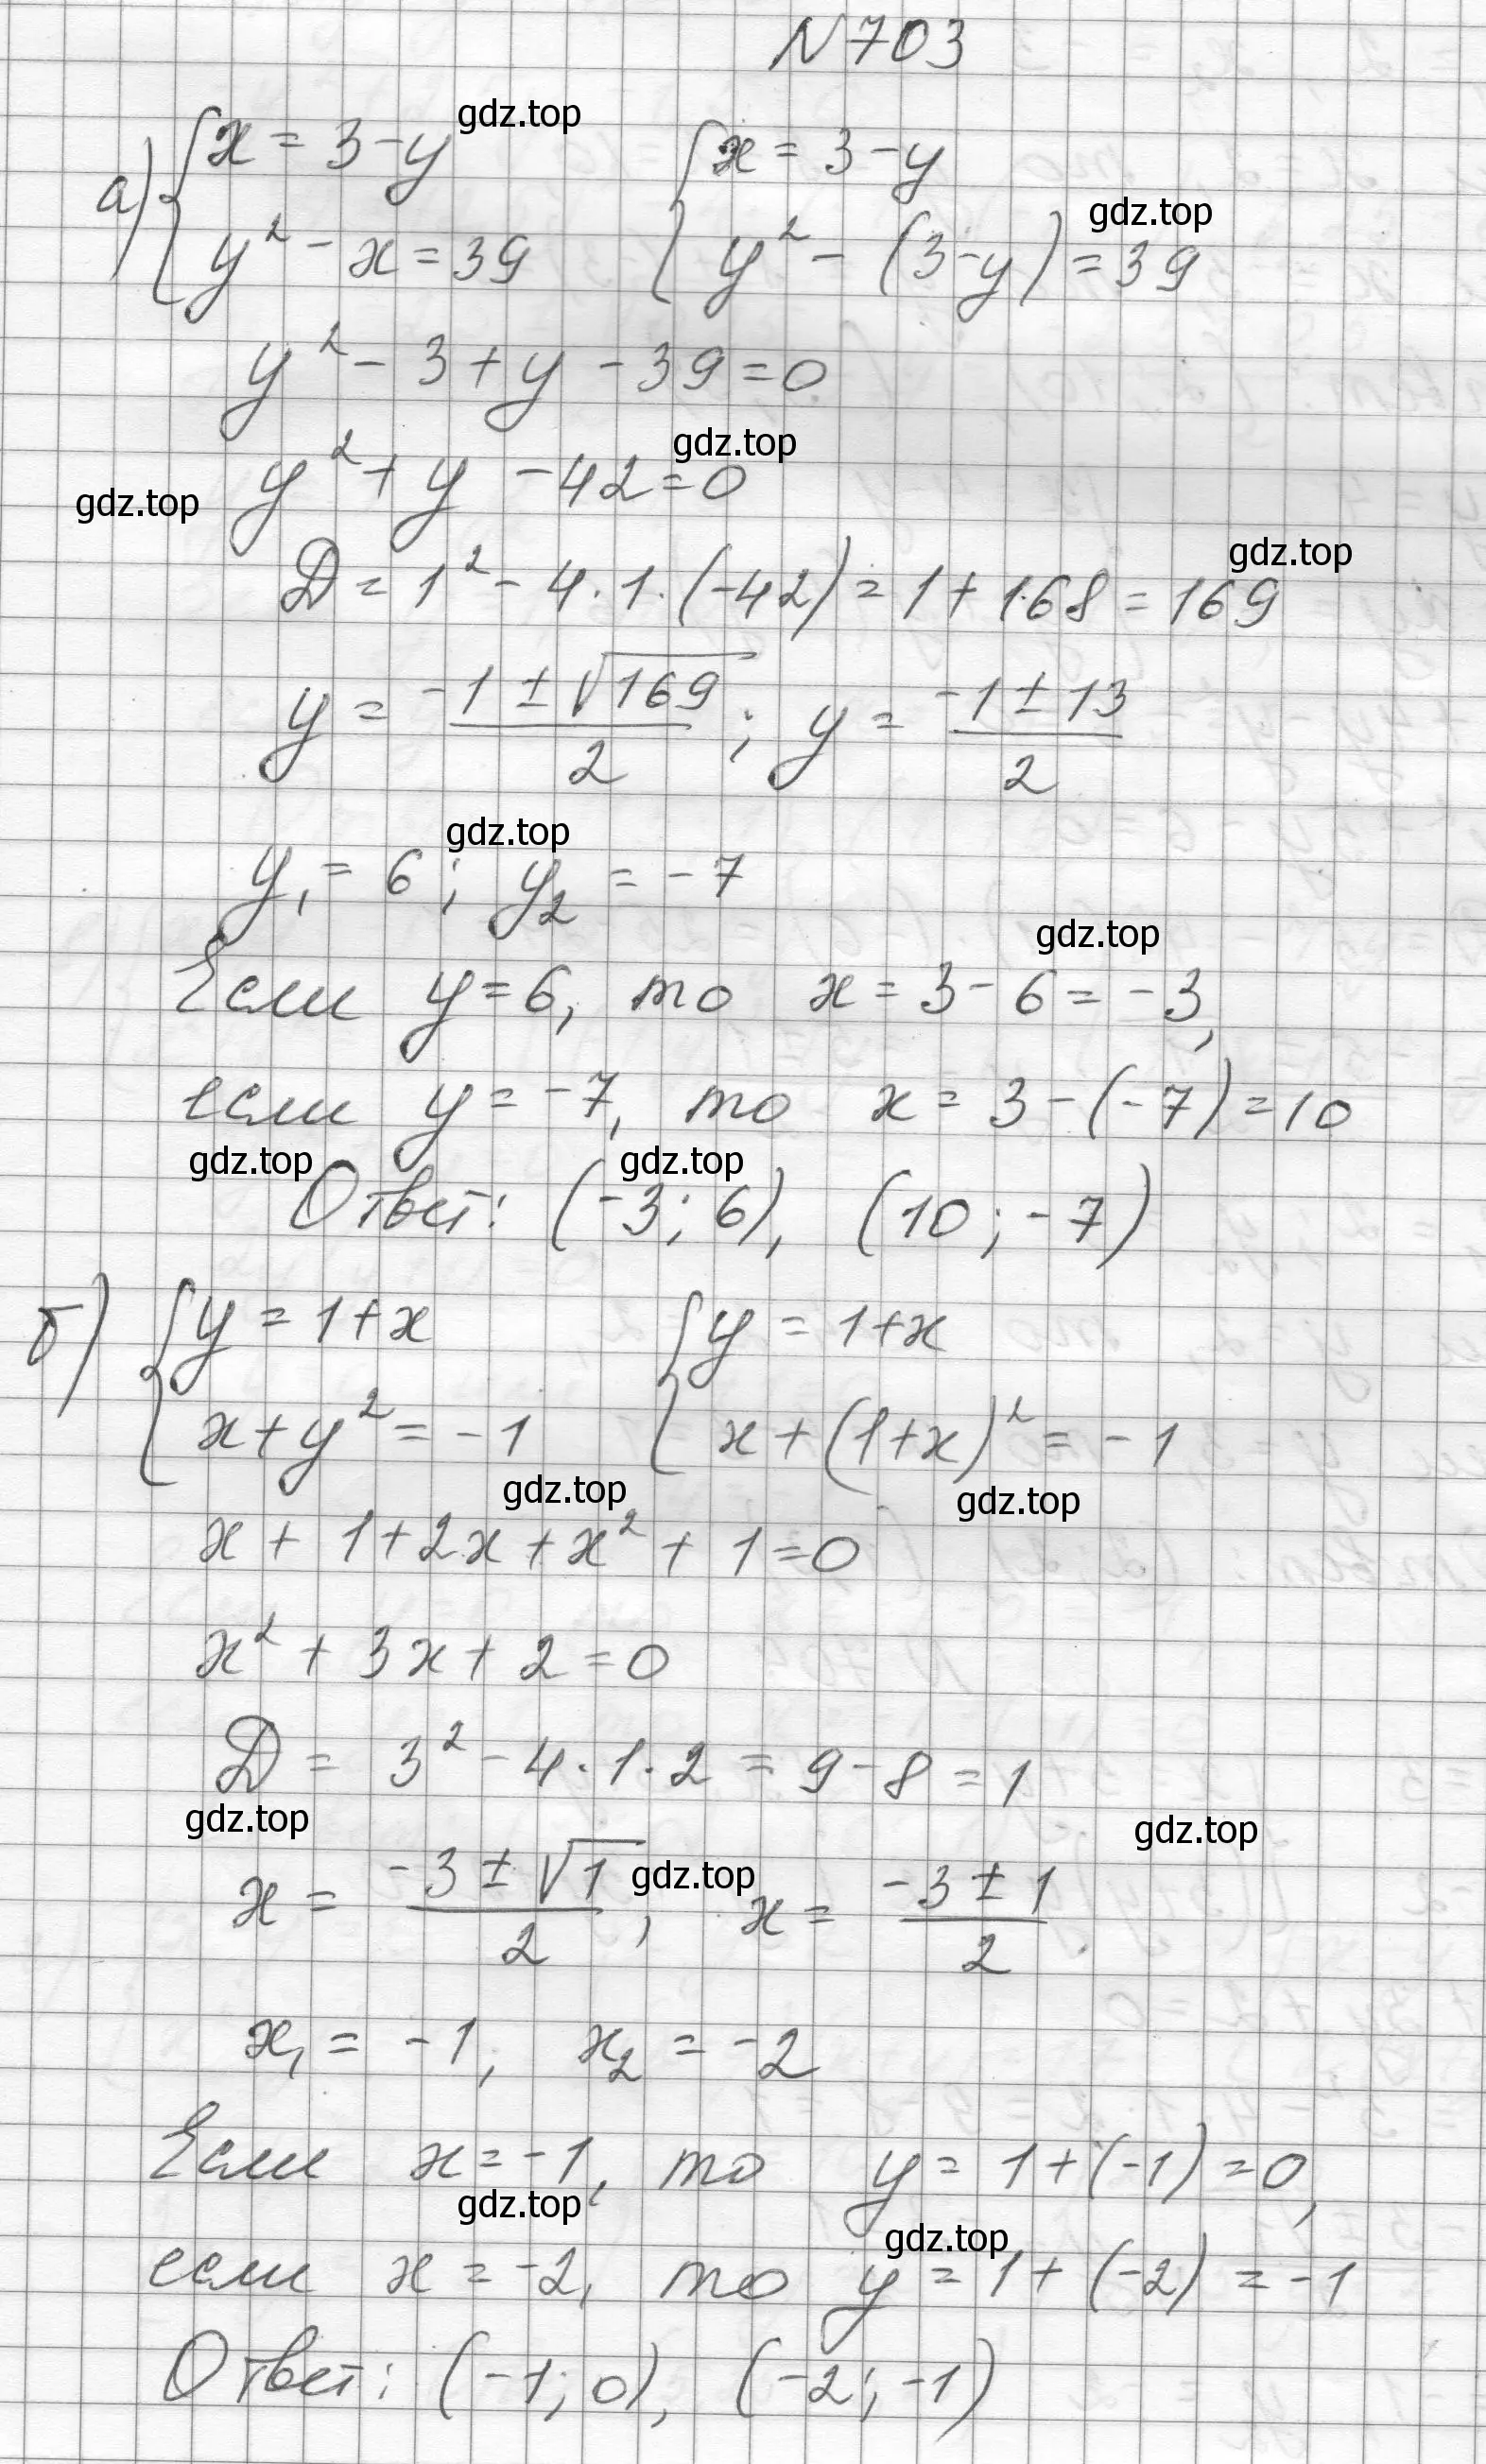 N 703
gdz.top
а) { x = 3 - y    { x = 3 - y
gdz.top
y² - x = 39    y² - (3 - y) = 39
y² - 3 + y - 39 = 0
gdz.top
y² + y - 42 = 0
gdz.top
gdz.top
D = 1² - 4 · 1 · (-42) = 1 + 168 = 169
y = (-1 ± √169)/2 ; y = (-1 ± 13)/2
gdz.top
y₁ = 6 ; y₂ = -7
gdz.top
Если y = 6, то x = 3 - 6 = -3,
если y = -7, то x = 3 - (-7) = 10
gdz.top gdz.top
Ответ: (-3; 6), (10; -7)
б) { y = 1 + x    { y = 1 + x
x + y² = -1    x + (1 + x)² = -1
gdz.top gdz.top
x + 1 + 2x + x² + 1 = 0
x² + 3x + 2 = 0
D = 3² - 4 · 1 · 2 = 9 - 8 = 1
gdz.top gdz.top
gdz.top
x = (-3 ± √1)/2 , x = (-3 ± 1)/2
x₁ = -1, x₂ = -2
Если x = -1, то y = 1 + (-1) = 0,
gdz.top
gdz.top
если x = -2, то y = 1 + (-2) = -1
Ответ: (-1; 0), (-2; -1)